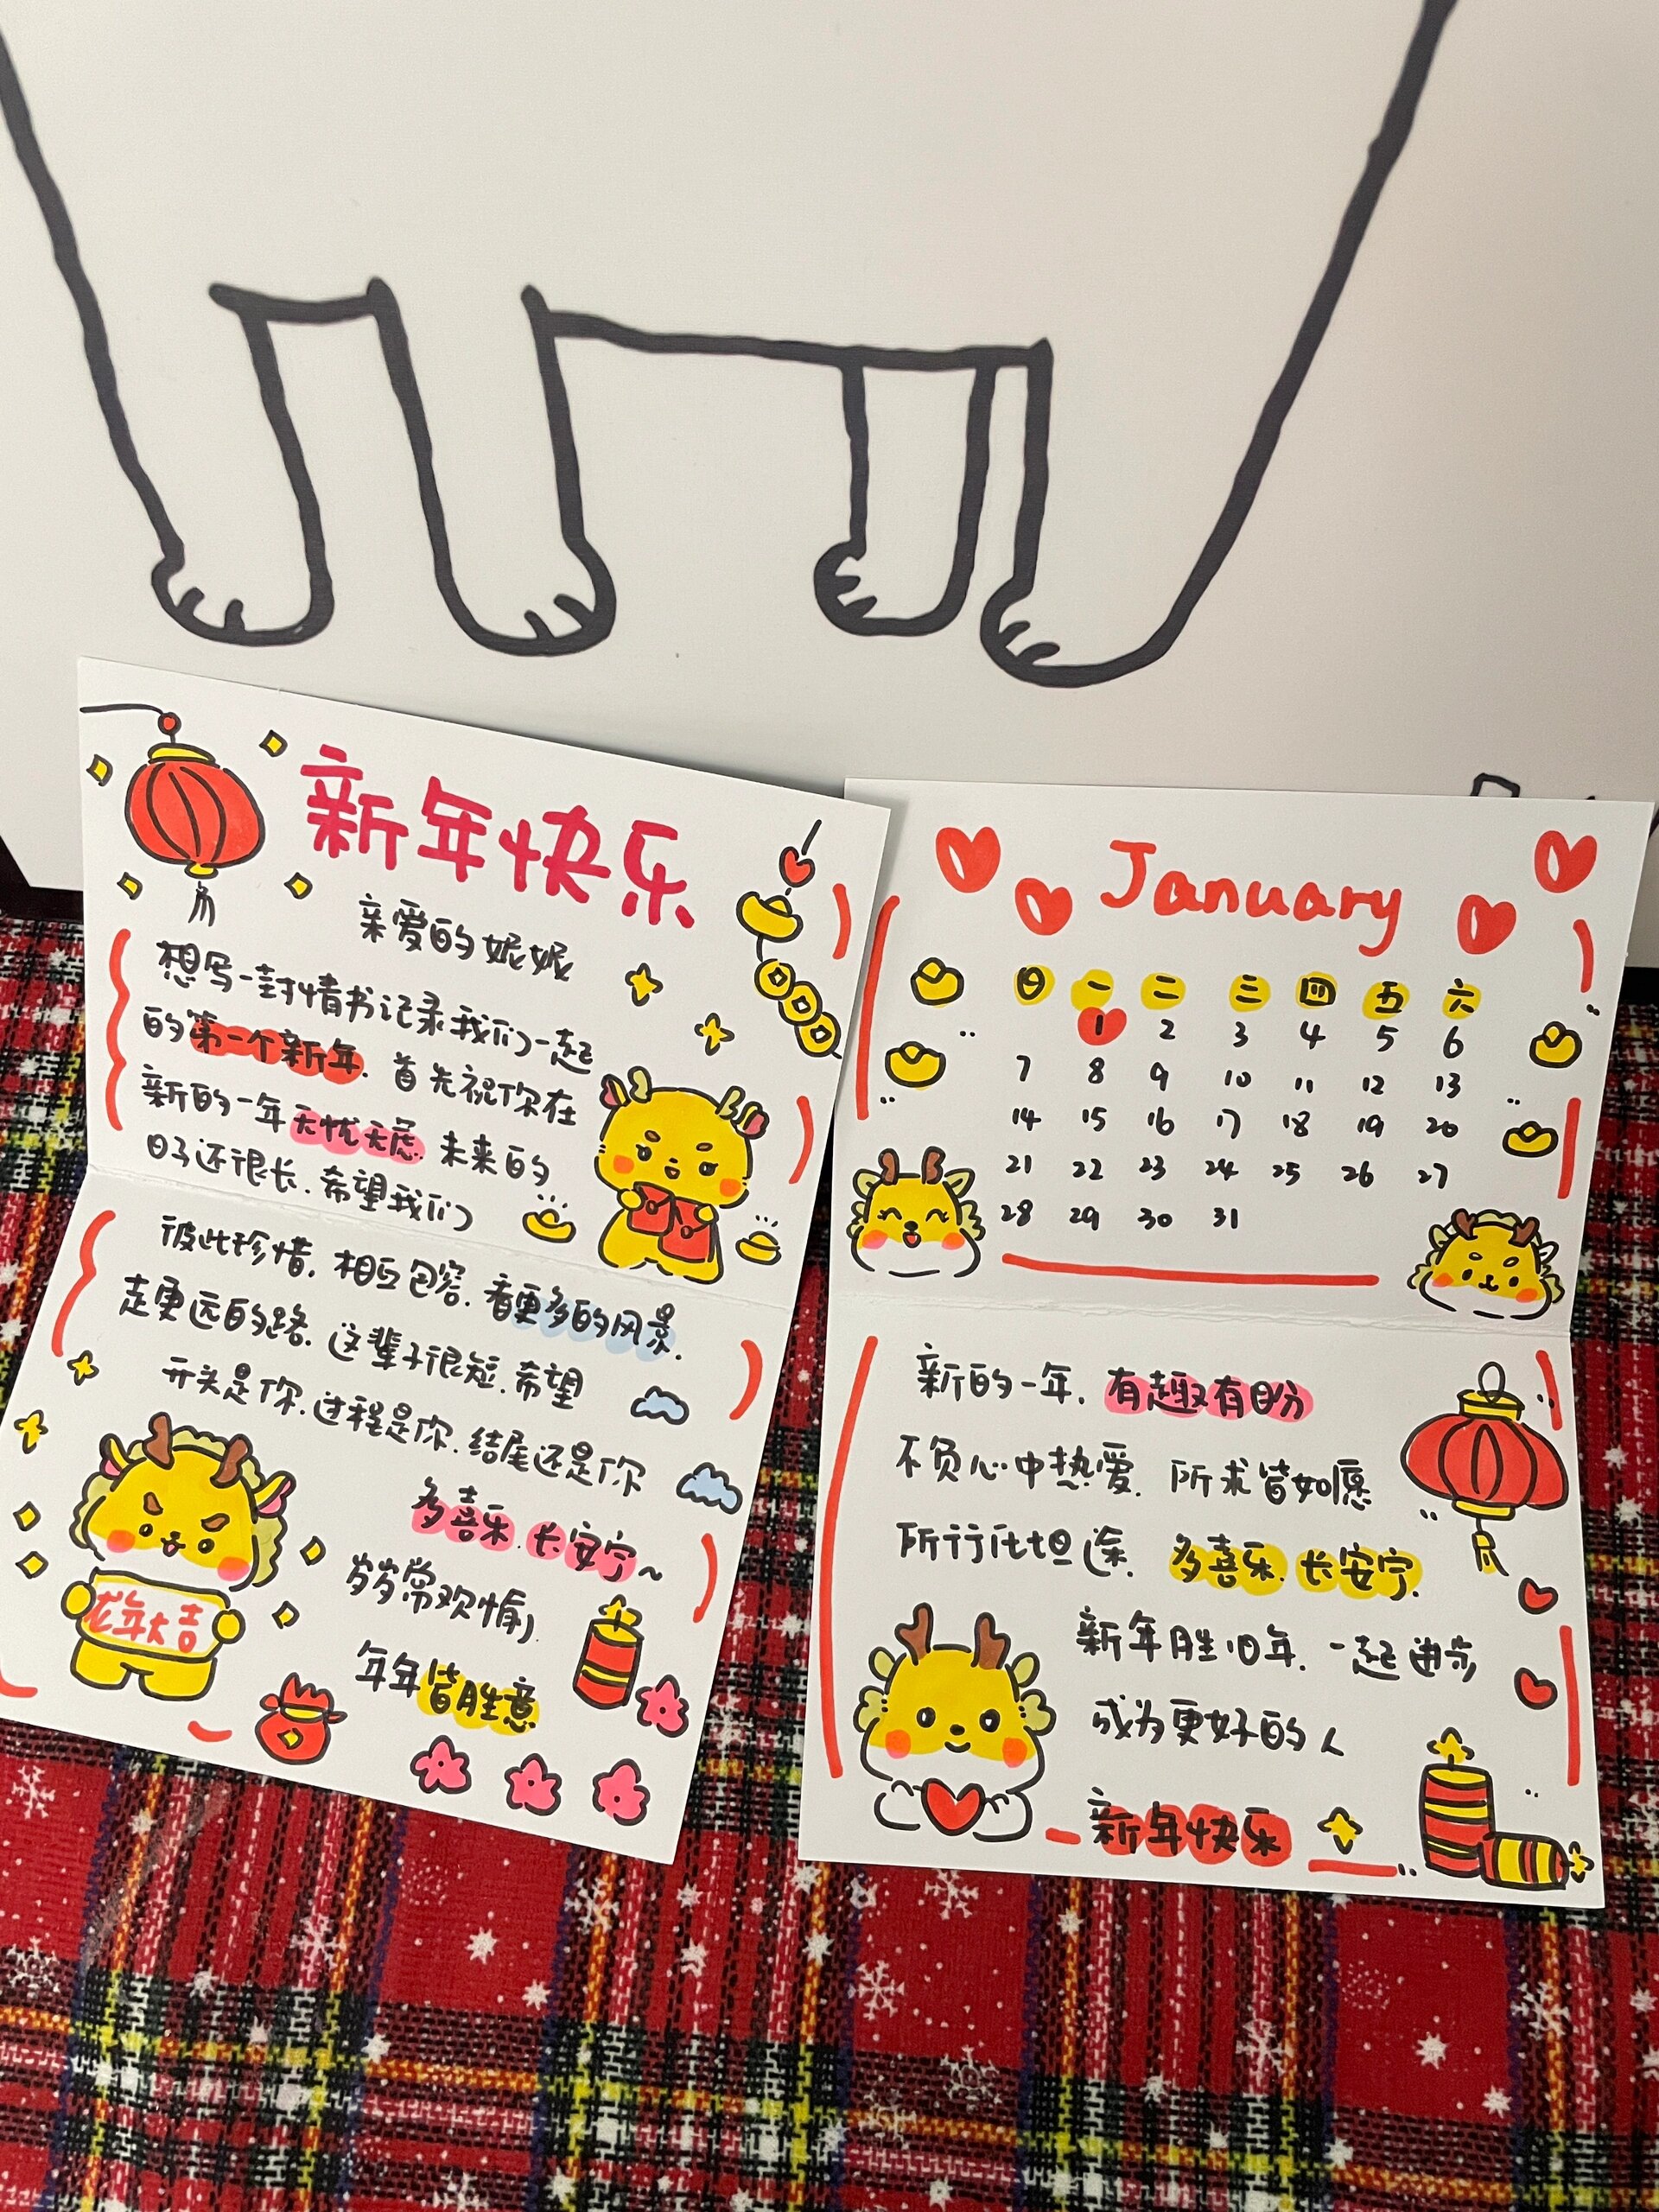 新年快乐
亲爱的妮妮
想写一封情书记录我们一起
的第一个新年.首先祝你在
新的一年无忧无虑.未来的
日子还很长.希望我们
彼此珍惜.相互包容.看更多的风景.
走更远的路.这辈子很短.希望
开头是你.过程是你.结尾还是你
多喜乐.长安宁~
岁岁常欢愉,
年年皆胜意
龙年大吉
January
日 一 二 三 四 五 六
1 2 3 4 5 6
7 8 9 10 11 12 13
14 15 16 17 18 19 20
21 22 23 24 25 26 27
28 29 30 31
新的一年.有趣有盼
不负心中热爱.所求皆如愿
所行化坦途.多喜乐.长安宁.
新年胜旧年.一起进步
成为更好的人
新年快乐